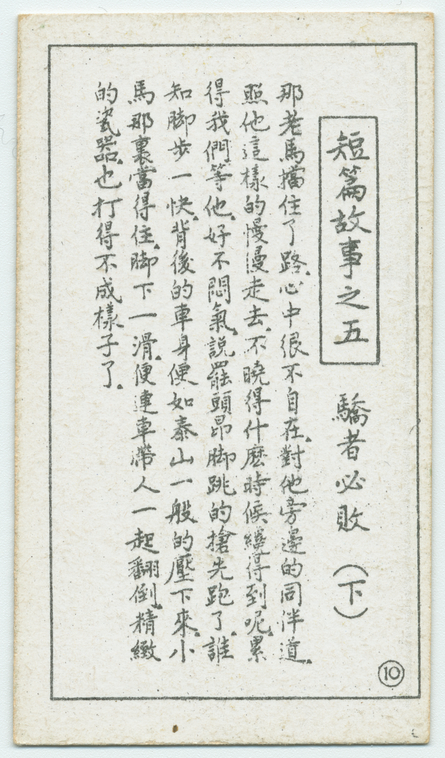 短篇故事之五 驕者必敗（下）
那老馬擋住了路、心中很不自在、對他旁邊的同伴道、
照他這樣的慢慢走去、不曉得什麼時候纔得到呢、累
得我們等他、好不悶氣、說罷頭昂脚跳的搶先跑了、誰
知脚步一快背後的車身便如泰山一般的壓下來、小
馬那裏當得住、脚下一滑、便連車帶人一起翻倒、精緻
的瓷器、也打得不成樣子了、
10